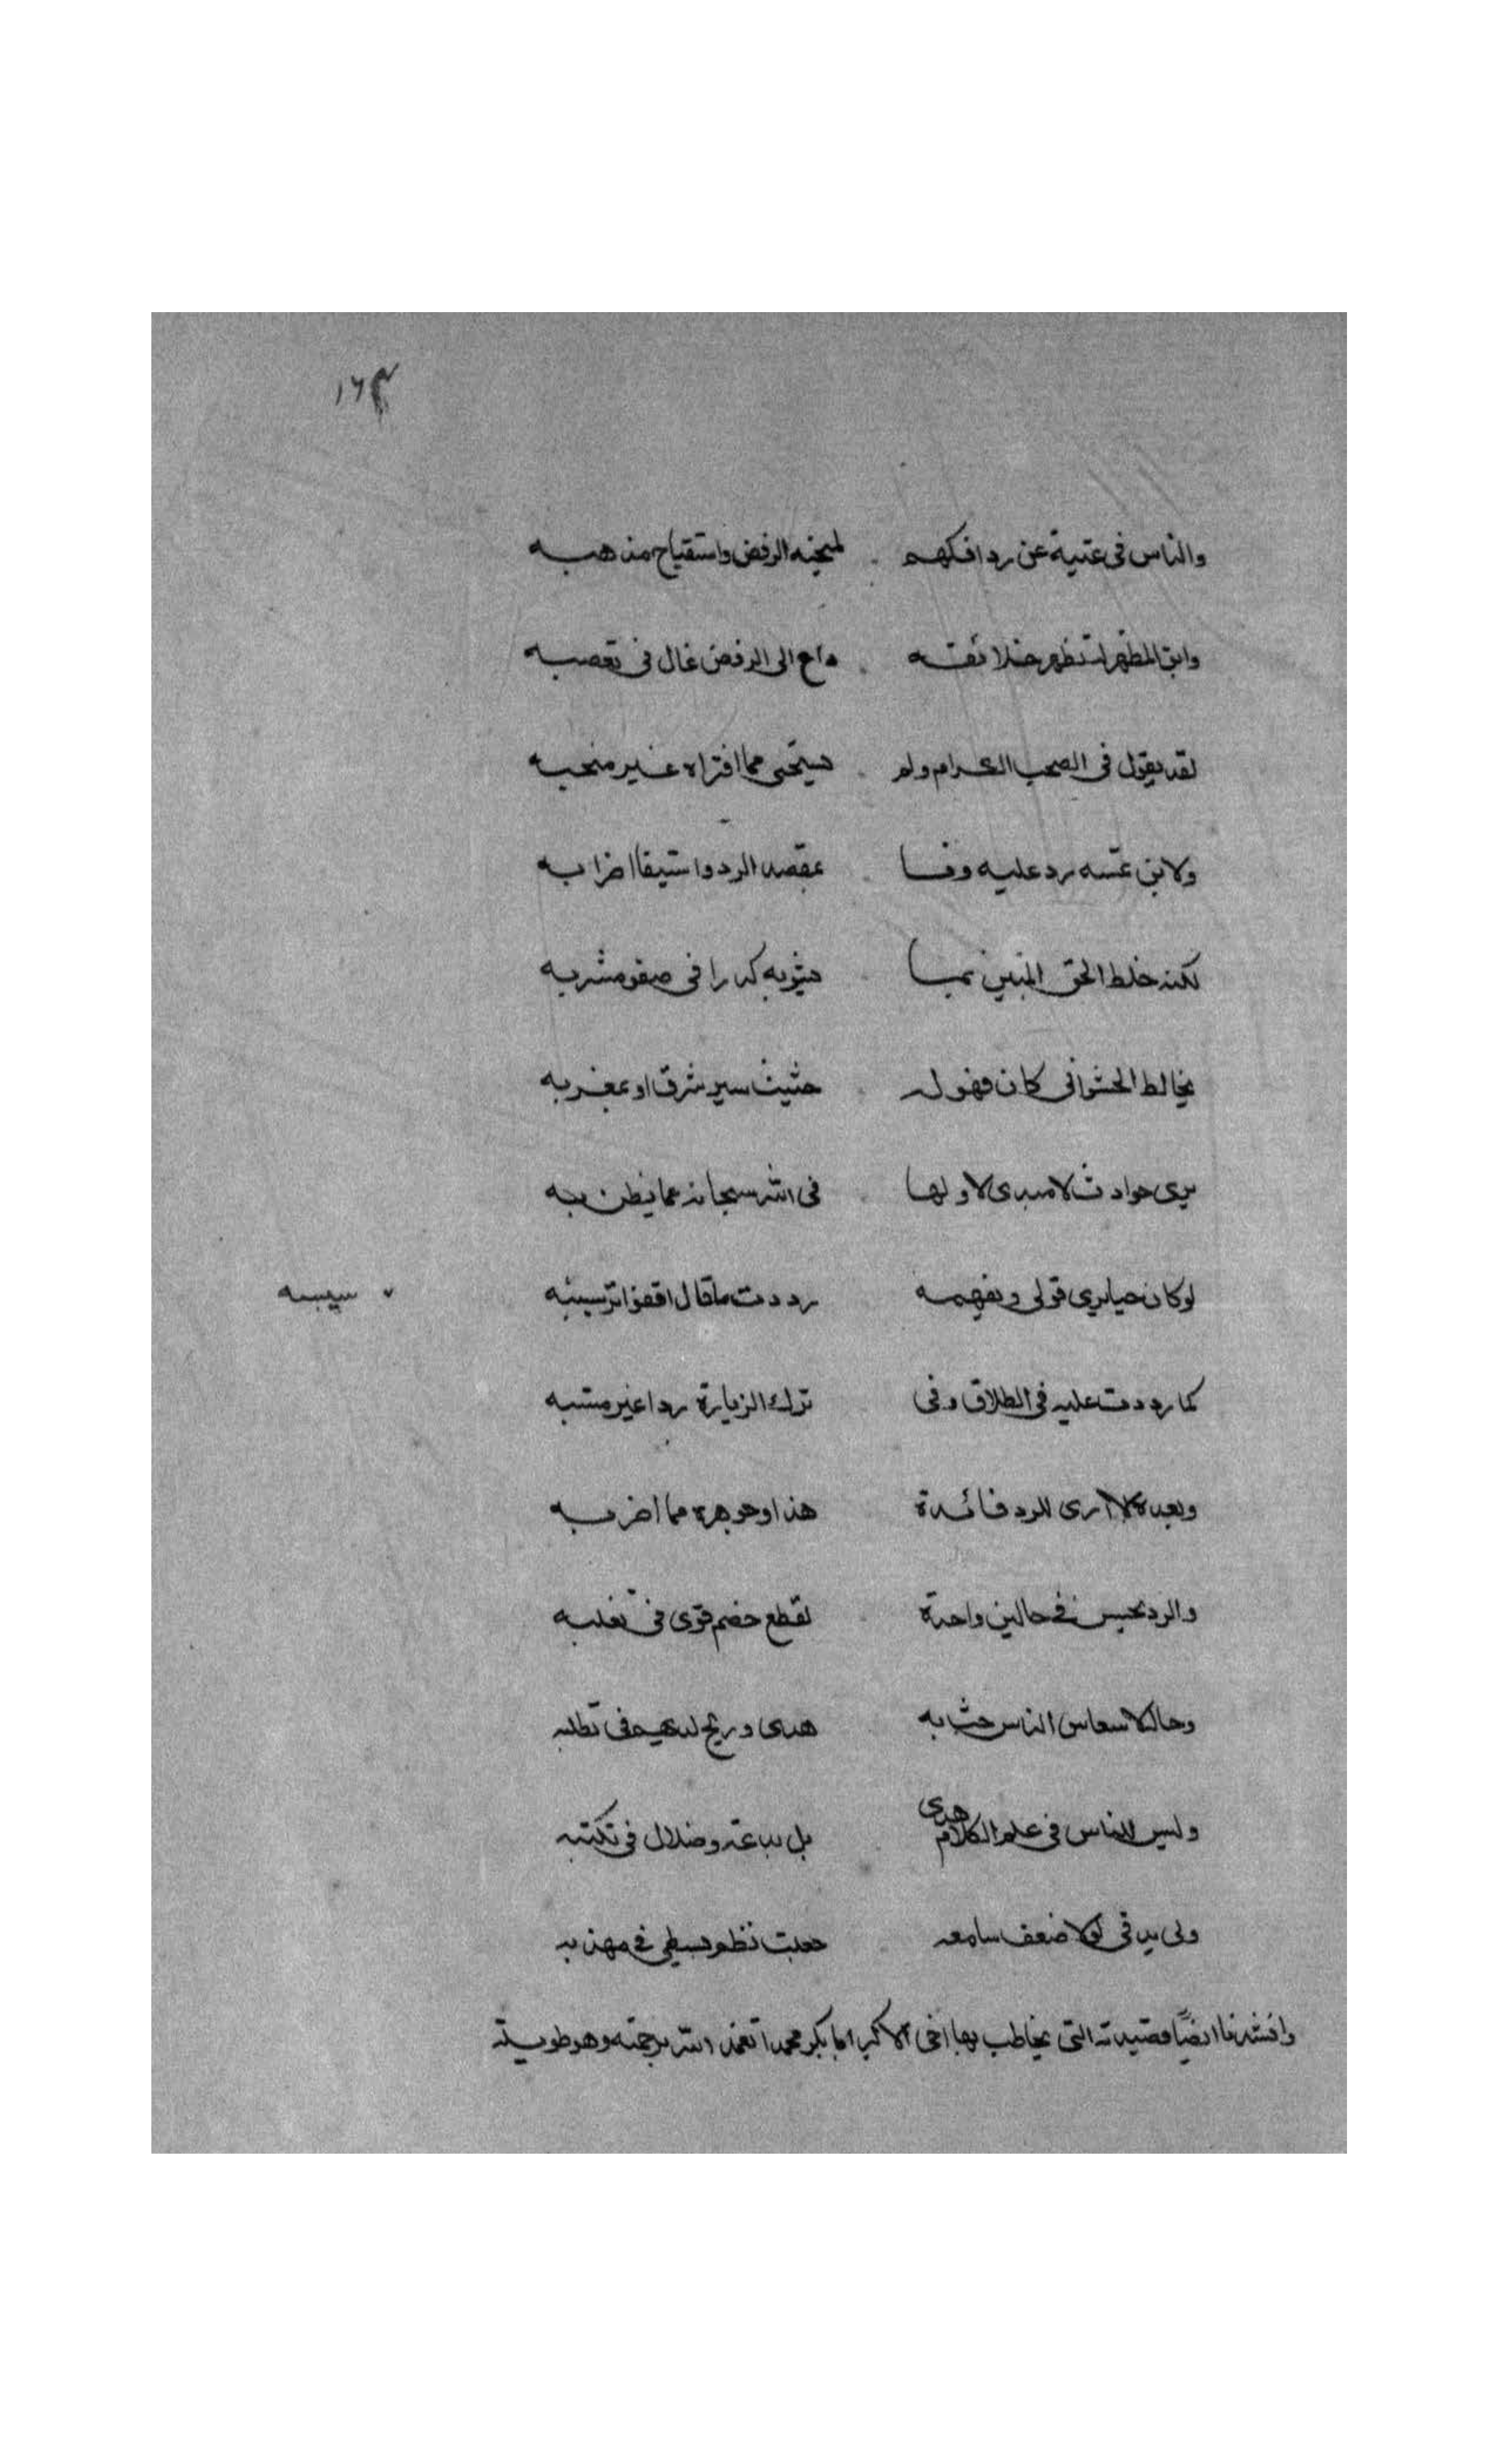 ١٦٣
والناس في غنية عن رد افكهم لهجنة الرفض واستقباح مذهبه
وابن المطهر لم تطهر خلائقه داع الى الرفض غال في تعصبه
لقد يقول في الصحب الكرام ولم يستحي مما افتراه غير منجبه
ولابن تيميه رد عليه وفا بمقصد الرد واستيفا اضرابه
لكنه خلط الحق المبين بما يشوبه كدرا في صفو مشربه
يخالط الحشو انى كان فهو له حثيث سير بشرق او بمغربه
يرى حوادث لا مبدى لاولها في الله سبحانه عما يظن به
لو كان حيا يرى قولي ويفهمه رددت ما قال اقفو اثر سبسبه
كما رددت عليه في الطلاق وفي ترك الزيارة ردا غير مشتبه
وبعده لا ارى للرد فائدة هذا وجوهره مما اضن به
والرد يحسن في حالين واحدة لقطع خصم قوى في تغلبه
وحالة الناس حيث به هدى وربح لديهم في تطلبه
وليس للناس في علم الكلام هدى بل بدعة وضلال في تكسبه
ولي يد في لولا ضعف سامعه جعلت نظم بسيطي في مهذبه
وانشدنا ايضًا قصيدته التي يخاطب بها اخى الاكبر ابا بكر محمدا تغمده الله برحمته وهو طويلة